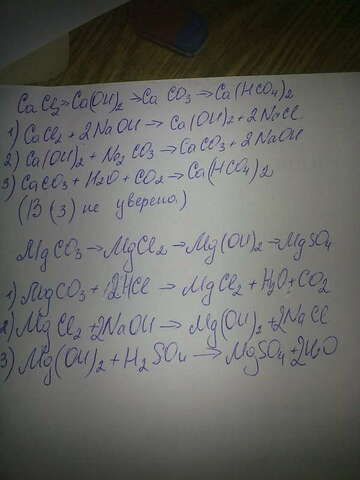 CaCl2 → Ca(OH)2 → CaCO3 → Ca(HCO4)2
1) CaCl2 + 2NaOH → Ca(OH)2 + 2NaCl
2) Ca(OH)2 + Na2CO3 → CaCO3 + 2NaOH
3) CaCO3 + H2O + CO2 → Ca(HCO4)2
(В (3) не уверена)
MgCO3 → MgCl2 → Mg(OH)2 → MgSO4
1) MgCO3 + 2HCl → MgCl2 + H2O + CO2
2) MgCl2 + 2NaOH → Mg(OH)2 + 2NaCl
3) Mg(OH)2 + H2SO4 → MgSO4 + 2H2O